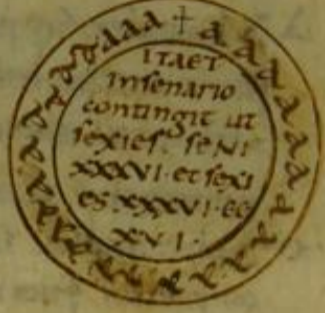 ITAET
in senario
contingit ut
sexies. seNI
XXXVI. et sexi
es XXXVI. cc
XVI.